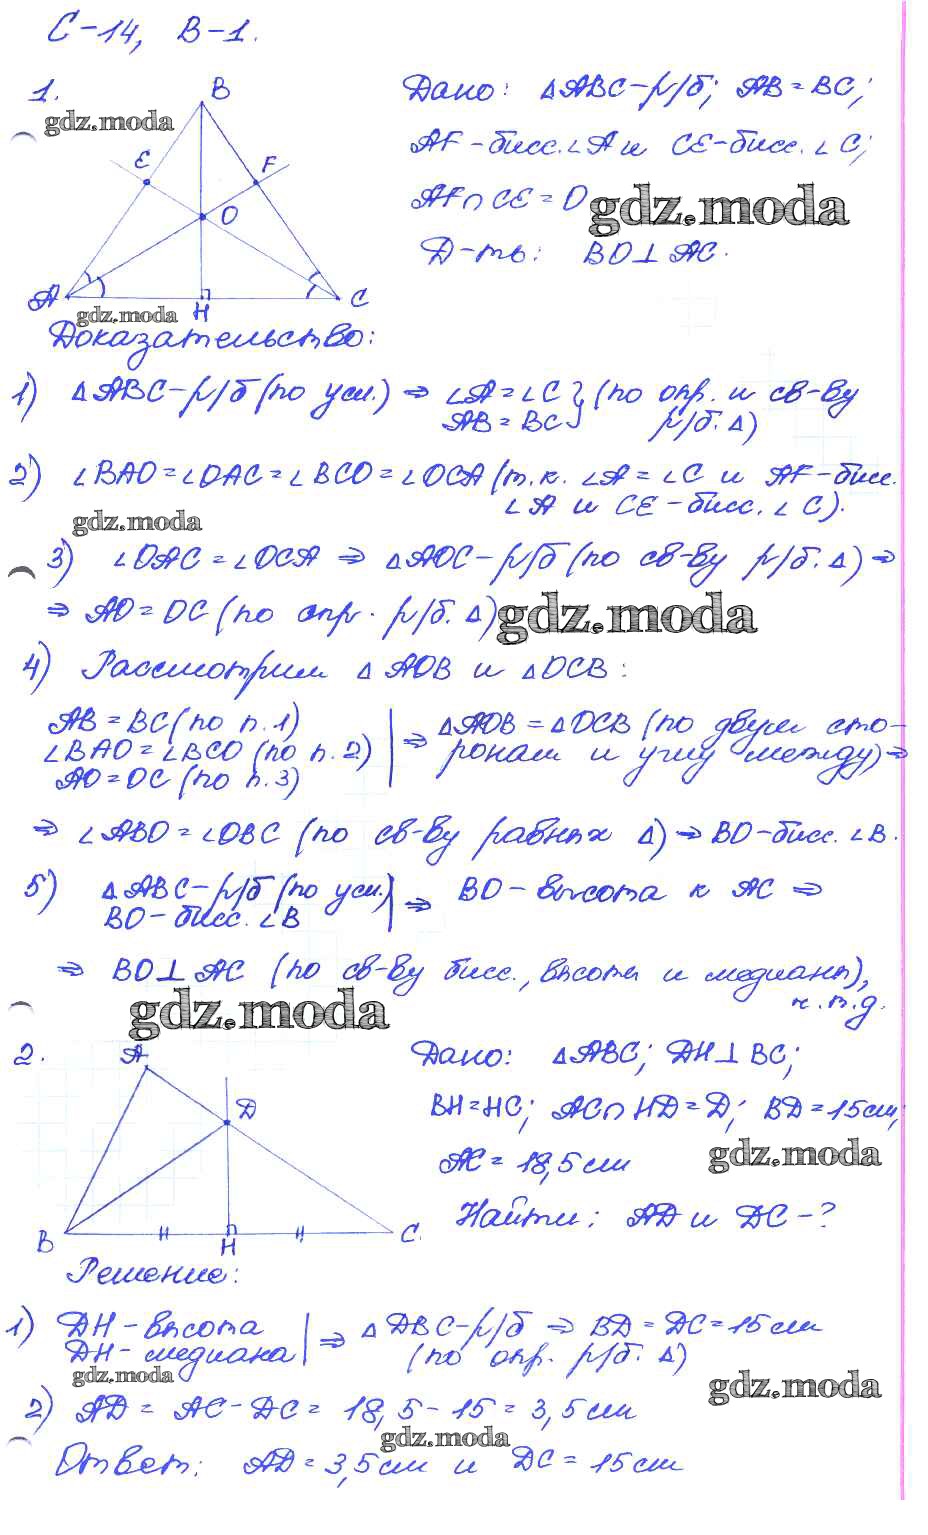 С-14, В-1.
1.
gdz.moda
B
E
F
O
A
H
C
gdz.moda
Дано: △ABC-р/б; AB=BC;
AF-бисс.∠A и CE-бисс. ∠C;
AF∩CE=O
gdz.moda
Д-ть: BO⊥AC.
Доказательство:
1) △ABC-р/б (по усл.) ⇒ ∠A=∠C } (по опр. и св-ву
AB=BC р/б. △)
2) ∠BAO=∠OAC=∠BCO=∠OCA (т.к. ∠A=∠C и AF-бисс.
∠A и CE-бисс. ∠C).
gdz.moda
3) ∠OAC=∠OCA ⇒ △AOC-р/б (по св-ву р/б. △) ⇒
⇒ AO=OC (по опр. р/б. △)
gdz.moda
4) Рассмотрим △AOB и △OCB:
AB=BC (по п.1)
∠BAO=∠BCO (по п.2)
AO=OC (по п.3)
⇒ △AOB=△OCB (по двум сто-
ронам и углу между) ⇒
⇒ ∠ABO=∠OBC (по св-ву равных △) ⇒ BO-бисс. ∠B.
5) △ABC-р/б (по усл.)
BO-бисс. ∠B
⇒ BO-высота к AC ⇒
⇒ BO⊥AC (по св-ву бисс., высоты и медианы),
ч.т.д.
gdz.moda
2.
A
D
B
H
C
Дано: △ABC; DH⊥BC;
BH=HC; AC∩HD=D; BD=15см;
AC=18,5см
gdz.moda
Найти: AD и DC-?
Решение:
1) DH-высота
DH-медиана
⇒ △DBC-р/б ⇒ BD=DC=15см
(по опр. р/б. △)
gdz.moda
gdz.moda
2) AD=AC-DC=18,5-15=3,5см
gdz.moda
Ответ: AD=3,5см и DC=15см